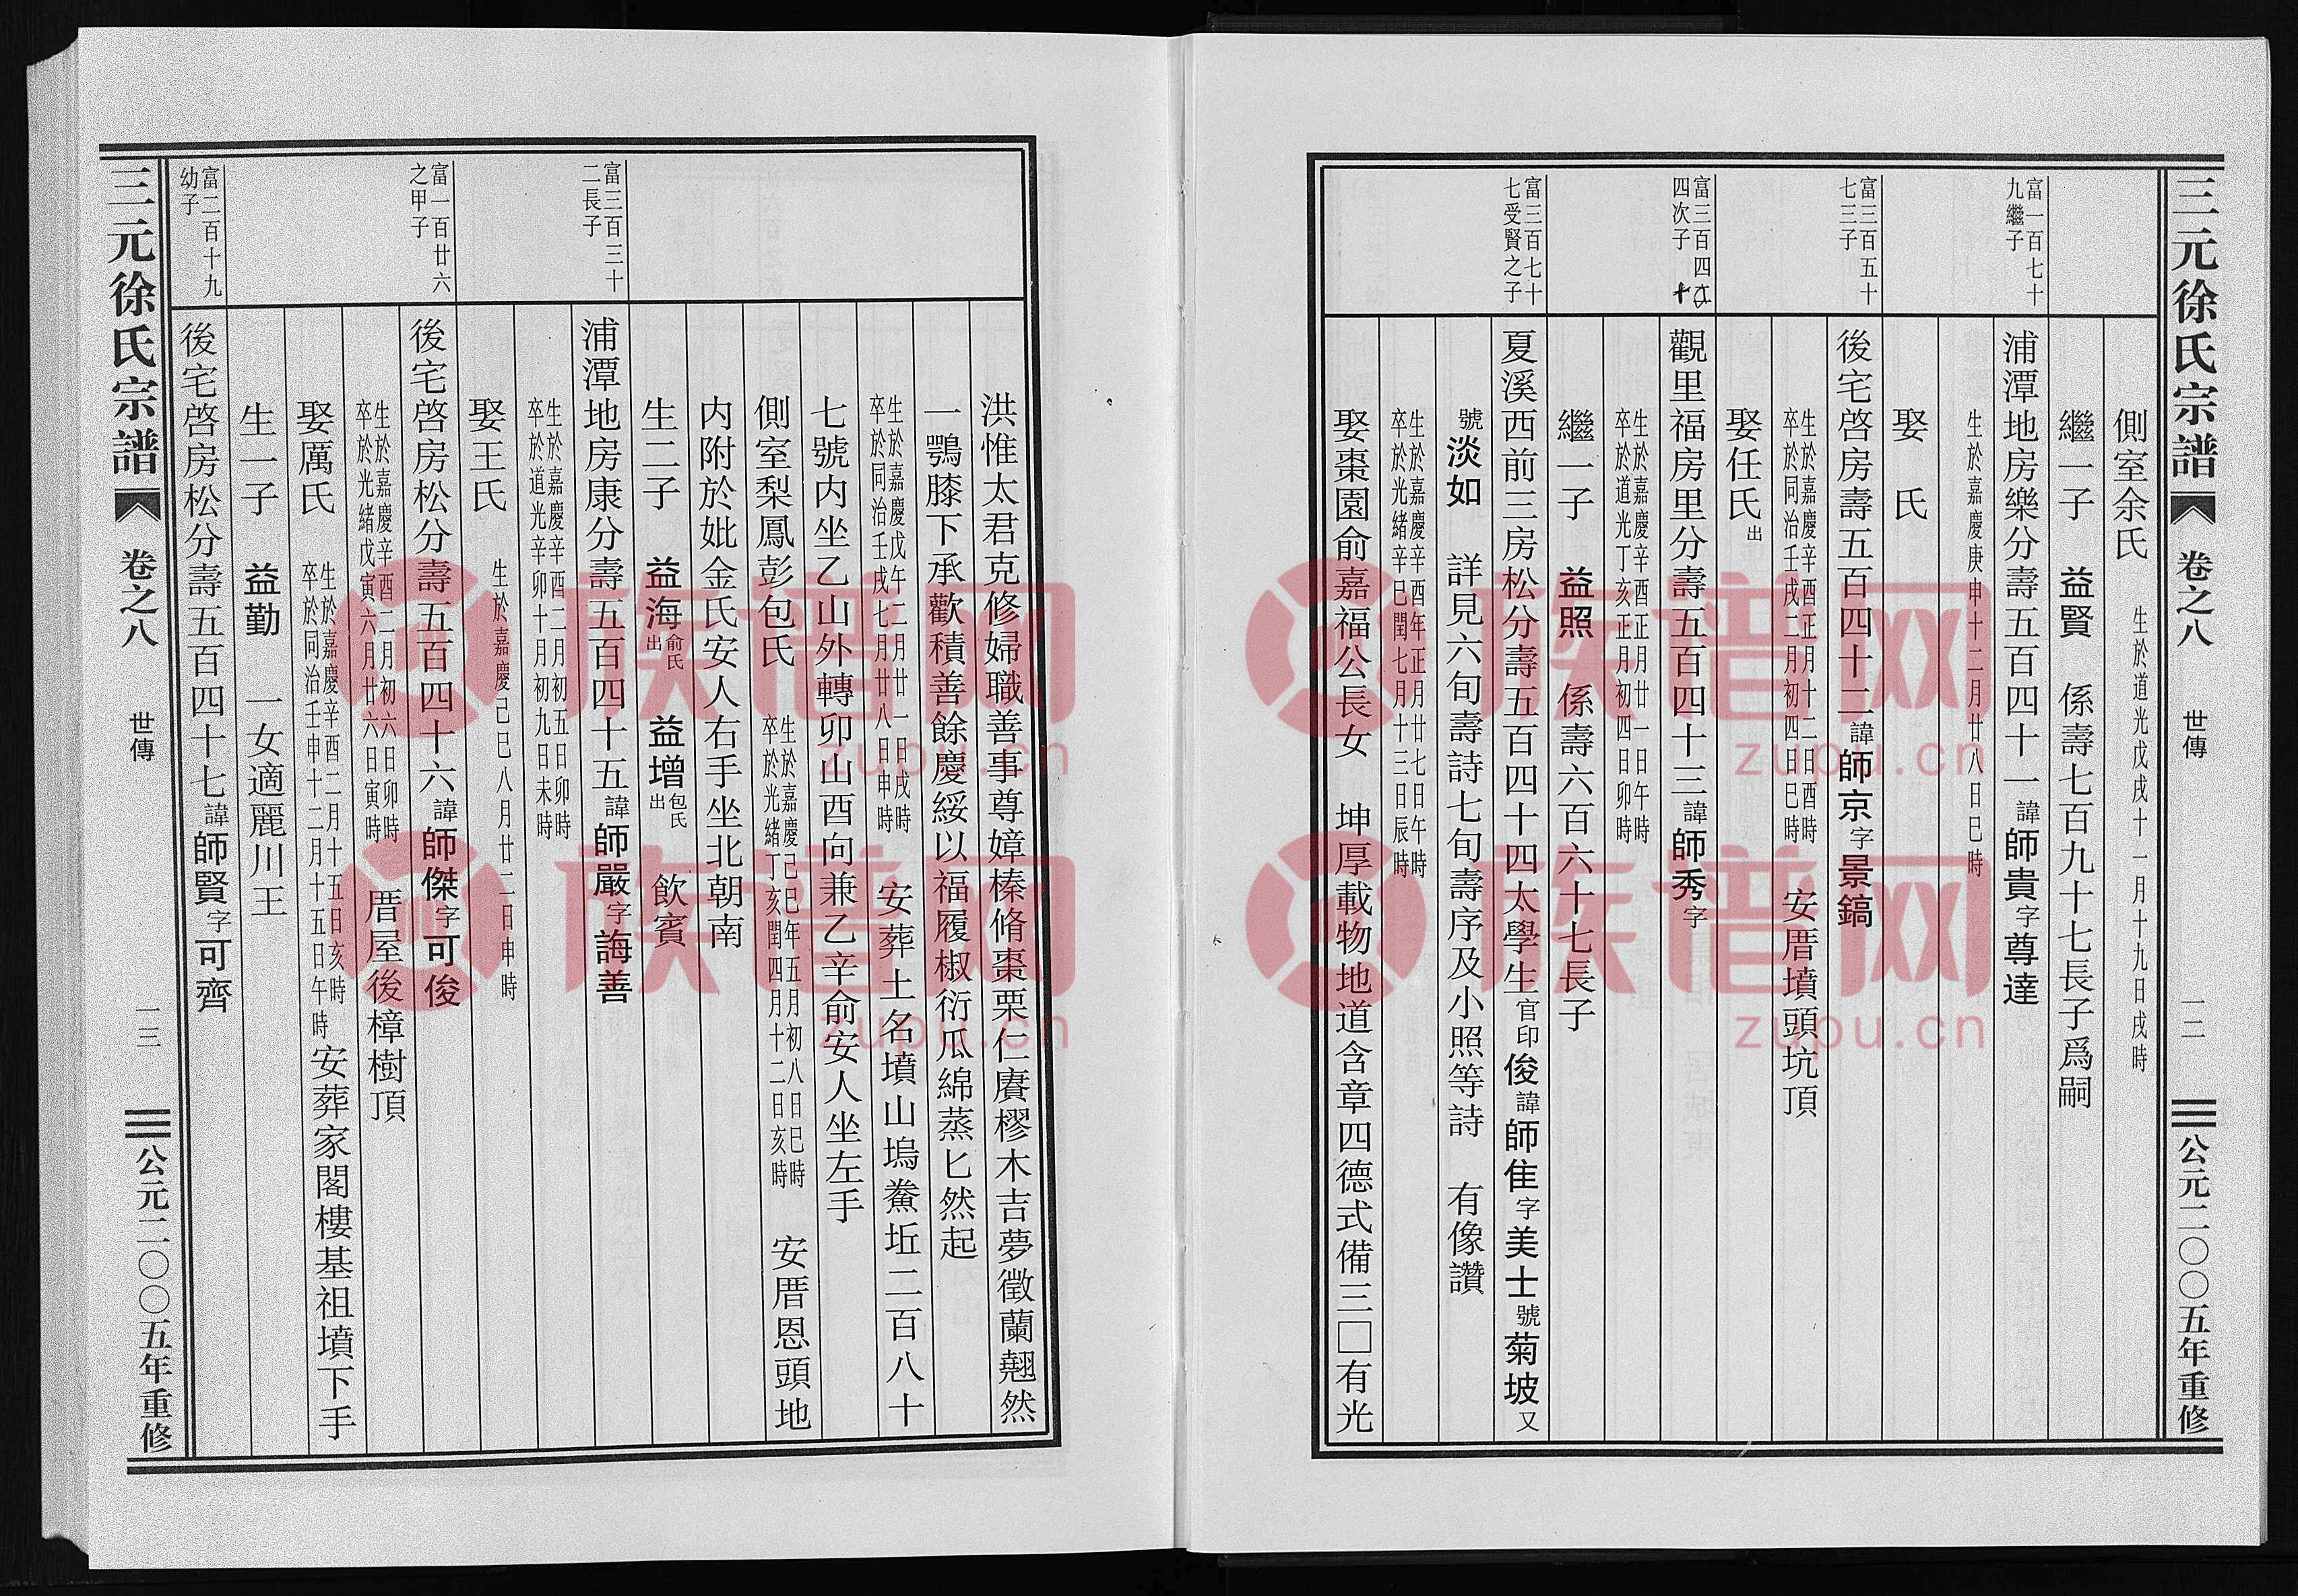 三元徐氏宗譜
卷之八
世傳
一二
公元二〇〇五年重修
側室余氏 生於道光戊戌十一月十九日戌時
繼一子 益賢 係壽七百九十七長子爲嗣
富一百七十九繼子
浦潭地房樂分壽五百四十一諱師貴字尊達
生於嘉慶庚申十二月廿八日巳時
娶 氏
富三百五十七三子
後宅啓房壽五百四十二諱師京字景鎬
生於嘉慶辛酉正月十二日酉時
卒於同治壬戌二月初四日巳時
安厝墳頭坑頂
娶任氏出
富三百四十四次子
觀里福房里分壽五百四十三諱師秀字
生於嘉慶辛酉正月廿一日午時
卒於道光丁亥正月初四日卯時
繼一子 益照 係壽六百六十七長子
富三百七十七受賢之子
夏溪西前三房松分壽五百四十四太學生官印俊諱師隹字美士號菊坡又
號淡如 詳見六旬壽詩七旬壽序及小照等詩 有像讚
生於嘉慶辛酉年正月廿七日午時
卒於光緒辛巳閏七月十三日辰時
娶棗園俞嘉福公長女 坤厚載物地道含章四德式備三□有光
洪惟太君克修婦職善事尊嫜榛脩棗栗仁賡樛木吉夢徵蘭翹然
一鶚膝下承歡積善餘慶綏以福履椒衍瓜綿蒸匕然起
生於嘉慶戊午二月廿一日戌時
卒於同治壬戌七月廿八日申時
安葬土名墳山塢鮝坵二百八十
七號内坐乙山外轉卯山酉向兼乙辛俞安人坐左手
側室梨鳳彭包氏
生於嘉慶己巳年五月初八日巳時
卒於光緒丁亥閏四月十二日亥時
安厝恩頭地
内附於妣金氏安人右手坐北朝南
生二子 益海俞氏出 益增包氏出 飲賓
富三百三十二長子
浦潭地房康分壽五百四十五諱師嚴字誨善
生於嘉慶辛酉二月初五日卯時
卒於道光辛卯十月初九日未時
娶王氏 生於嘉慶己巳八月廿二日申時
富一百廿六之甲子
後宅啓房松分壽五百四十六諱師傑字可俊
生於嘉慶辛酉二月初六日卯時
卒於光緒戊寅六月廿六日寅時
厝屋後樟樹頂
娶厲氏
生於嘉慶辛酉二月十五日亥時
卒於同治壬申十二月十五日午時
安葬家閣樓基祖墳下手
生一子 益勤 一女適麗川王
富二百十九幼子
後宅啓房松分壽五百四十七諱師賢字可齊
三元徐氏宗譜
卷之八
世傳
一三
公元二〇〇五年重修
族谱网
zupu.cn
族谱网
zupu.cn
族谱网
zupu.cn
族谱网
zupu.cn